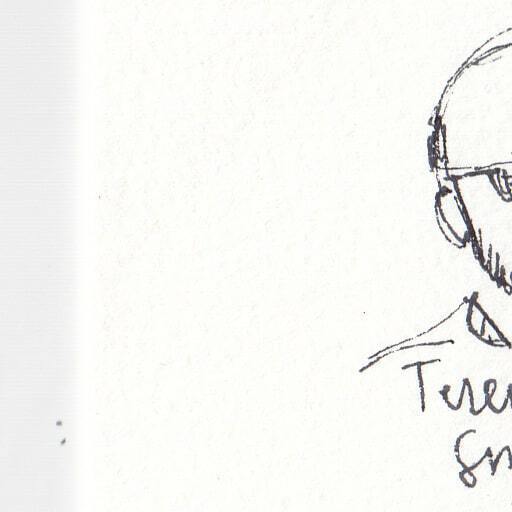 Teren
Sm